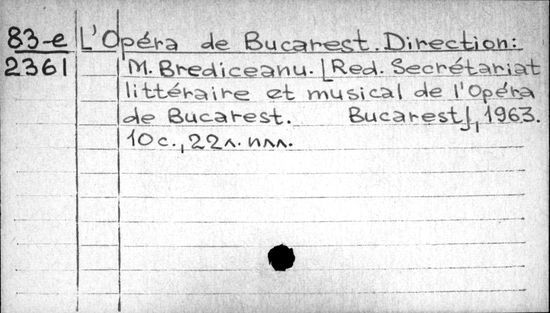 83-e L'Opéra de Bucarest. Direction:
2361 M. Brediceanu. [Red. Secrétariat
littéraire et musical de l'Opéra
de Bucarest. Bucarest], 1963.
10 с., 22 л. илл.